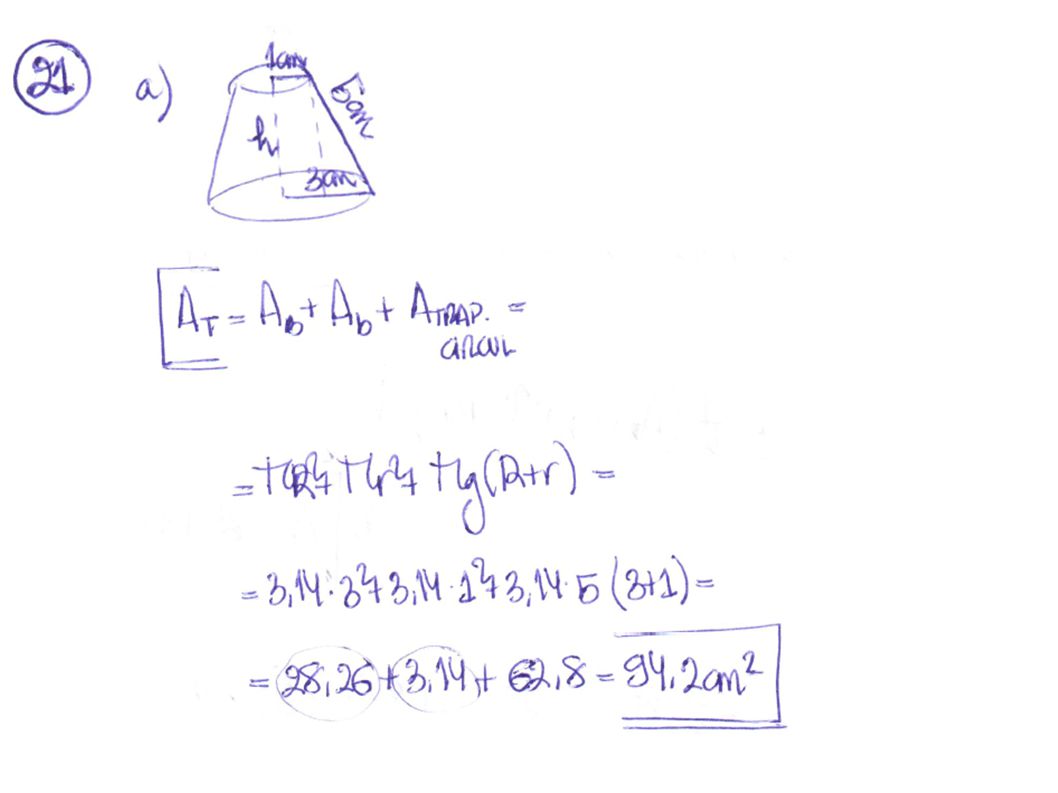 21 a)
1cm
5cm
h
3cm
A_T = A_b + A_b + A_TRAP. =
CIRCUL
= πR² + πr² + πg(R+r) =
= 3,14·3² + 3,14·1² + 3,14·5 (3+1) =
= 28,26 + 3,14 + 62,8 = 94,2cm²